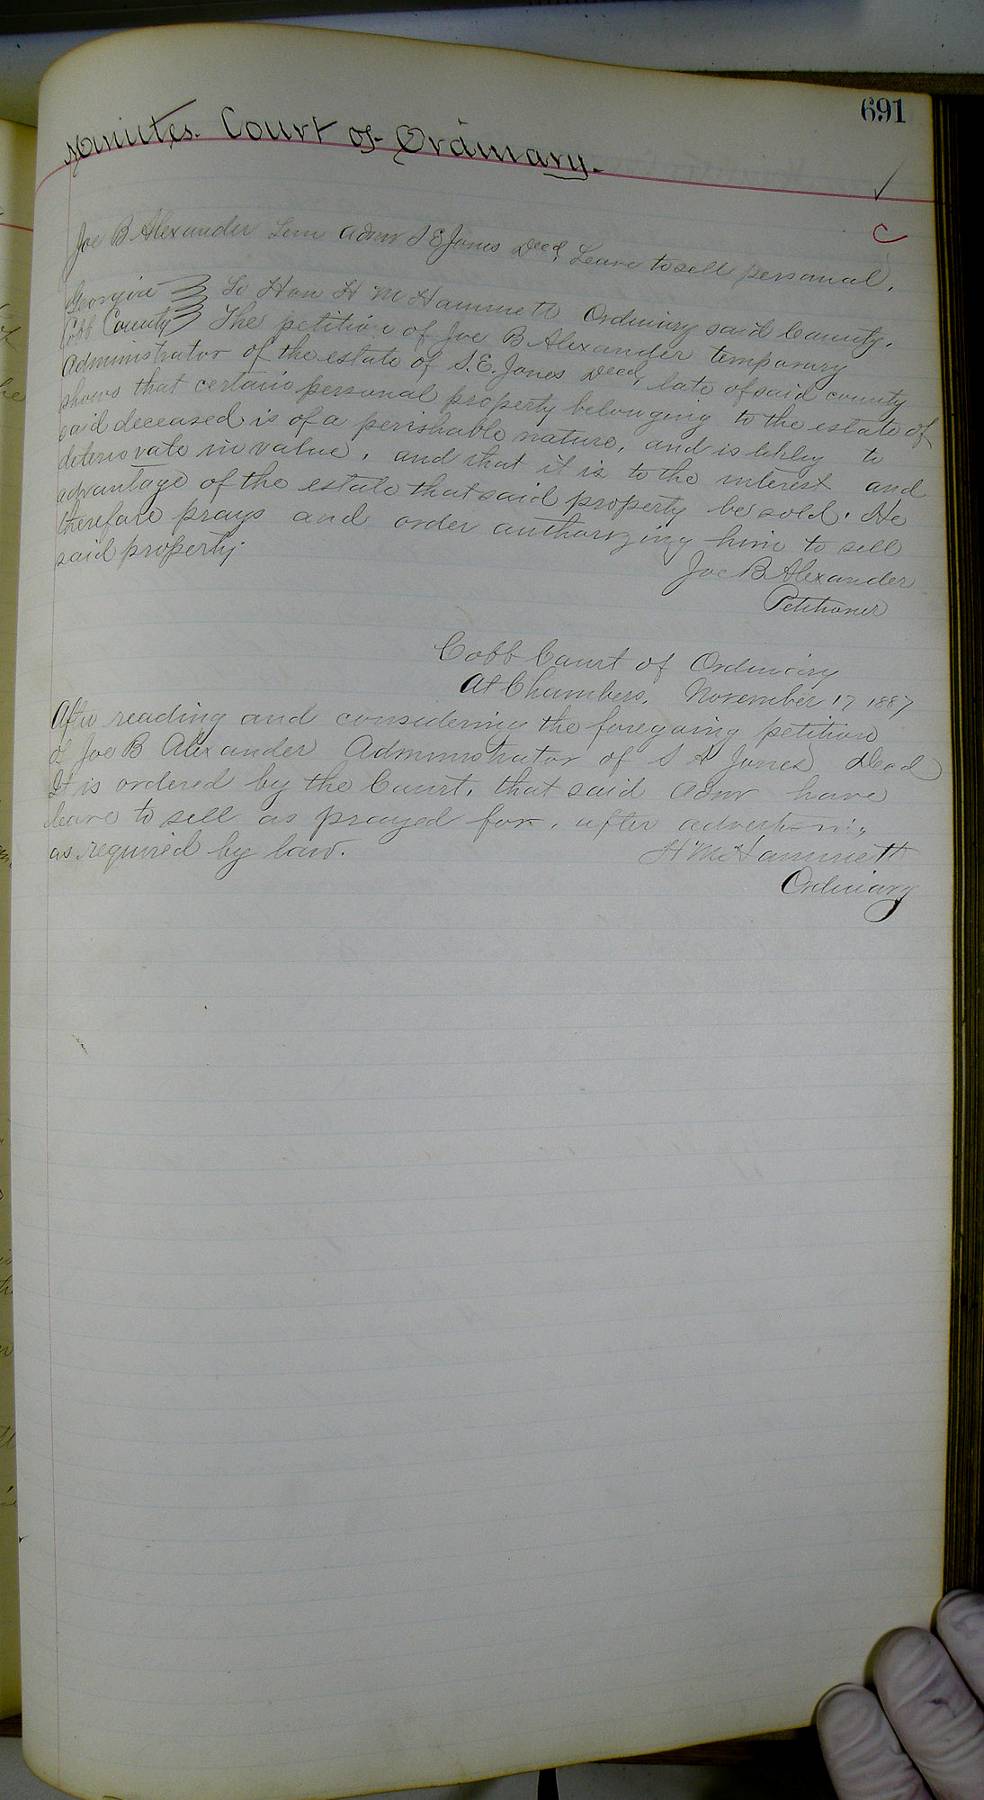 691
Minutes. Court of Ordinary.
Joe B Alexander Tem Admr S E Jones Decd, Leave to sell personal.
Georgia } To Hon H M Hammett Ordinary said County.
Cobb County } The petition of Joe B Alexander temporary
Administrator of the estate of S. E. Jones Decd, late of said county
shows that certain personal property belonging to the estate of
said deceased is of a perishable nature, and is likely to
deteriorate in value, and that it is to the interest and
advantage of the estate that said property be sold. He
therefore prays and order authorizing him to sell
said property.
Joe B Alexander
Petitioner
Cobb Court of Ordinary
At Chambers, November 17 1887
After reading and considering the foregoing petition
of Joe B Alexander Administrator of S A Jones Decd
It is ordered by the Court, that said Admr have
leave to sell as prayed for, after advertising
as required by law.
H M Hammett
Ordinary